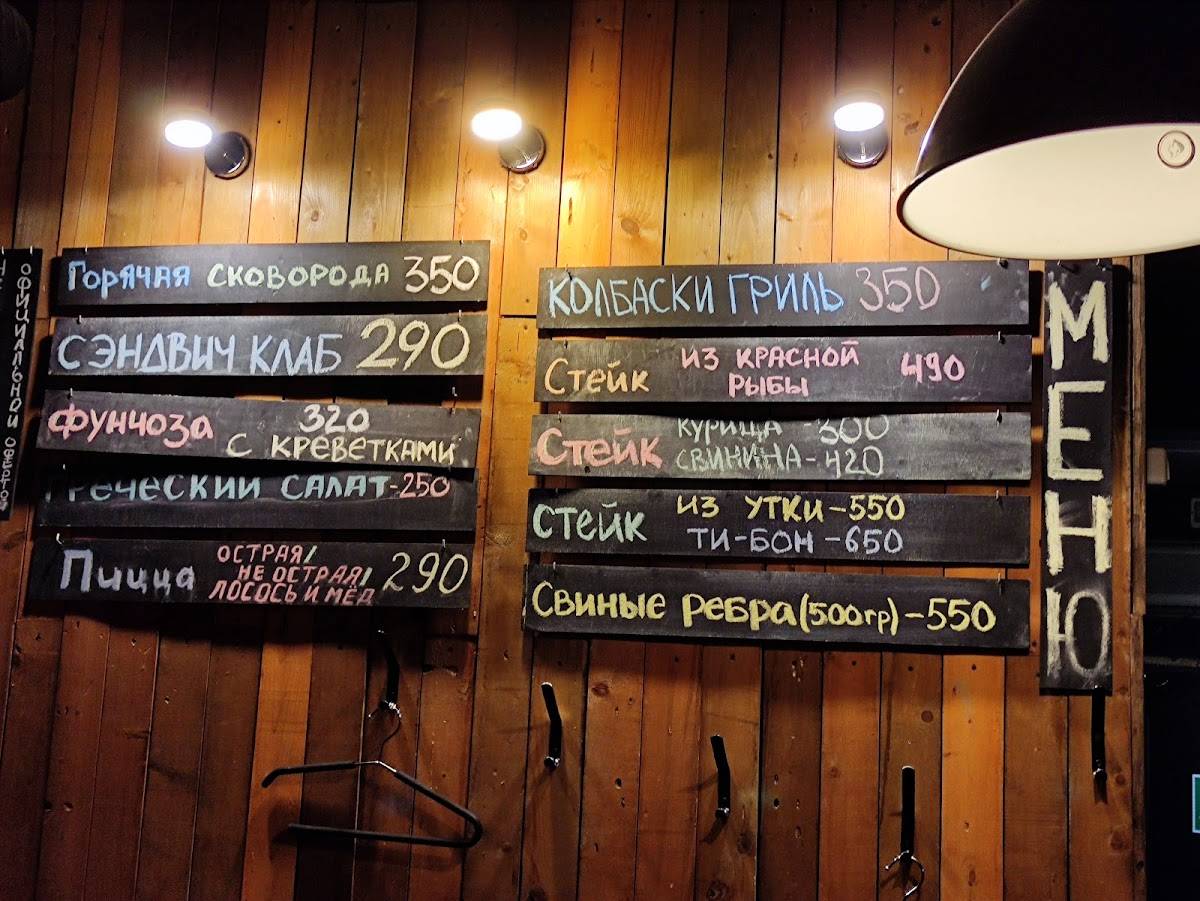 Горячая сковорода 350
Сэндвич клаб 290
Фунчоза 320
с креветками
Греческий салат-250
Пицца острая/
не острая/ 290
лосось и мёд
Колбаски гриль 350
Стейк из красной 490
рыбы
Стейк курица -300
свинина-420
Стейк из утки-550
ти-бон-650
Свиные ребра(500гр)-550
МЕНЮ